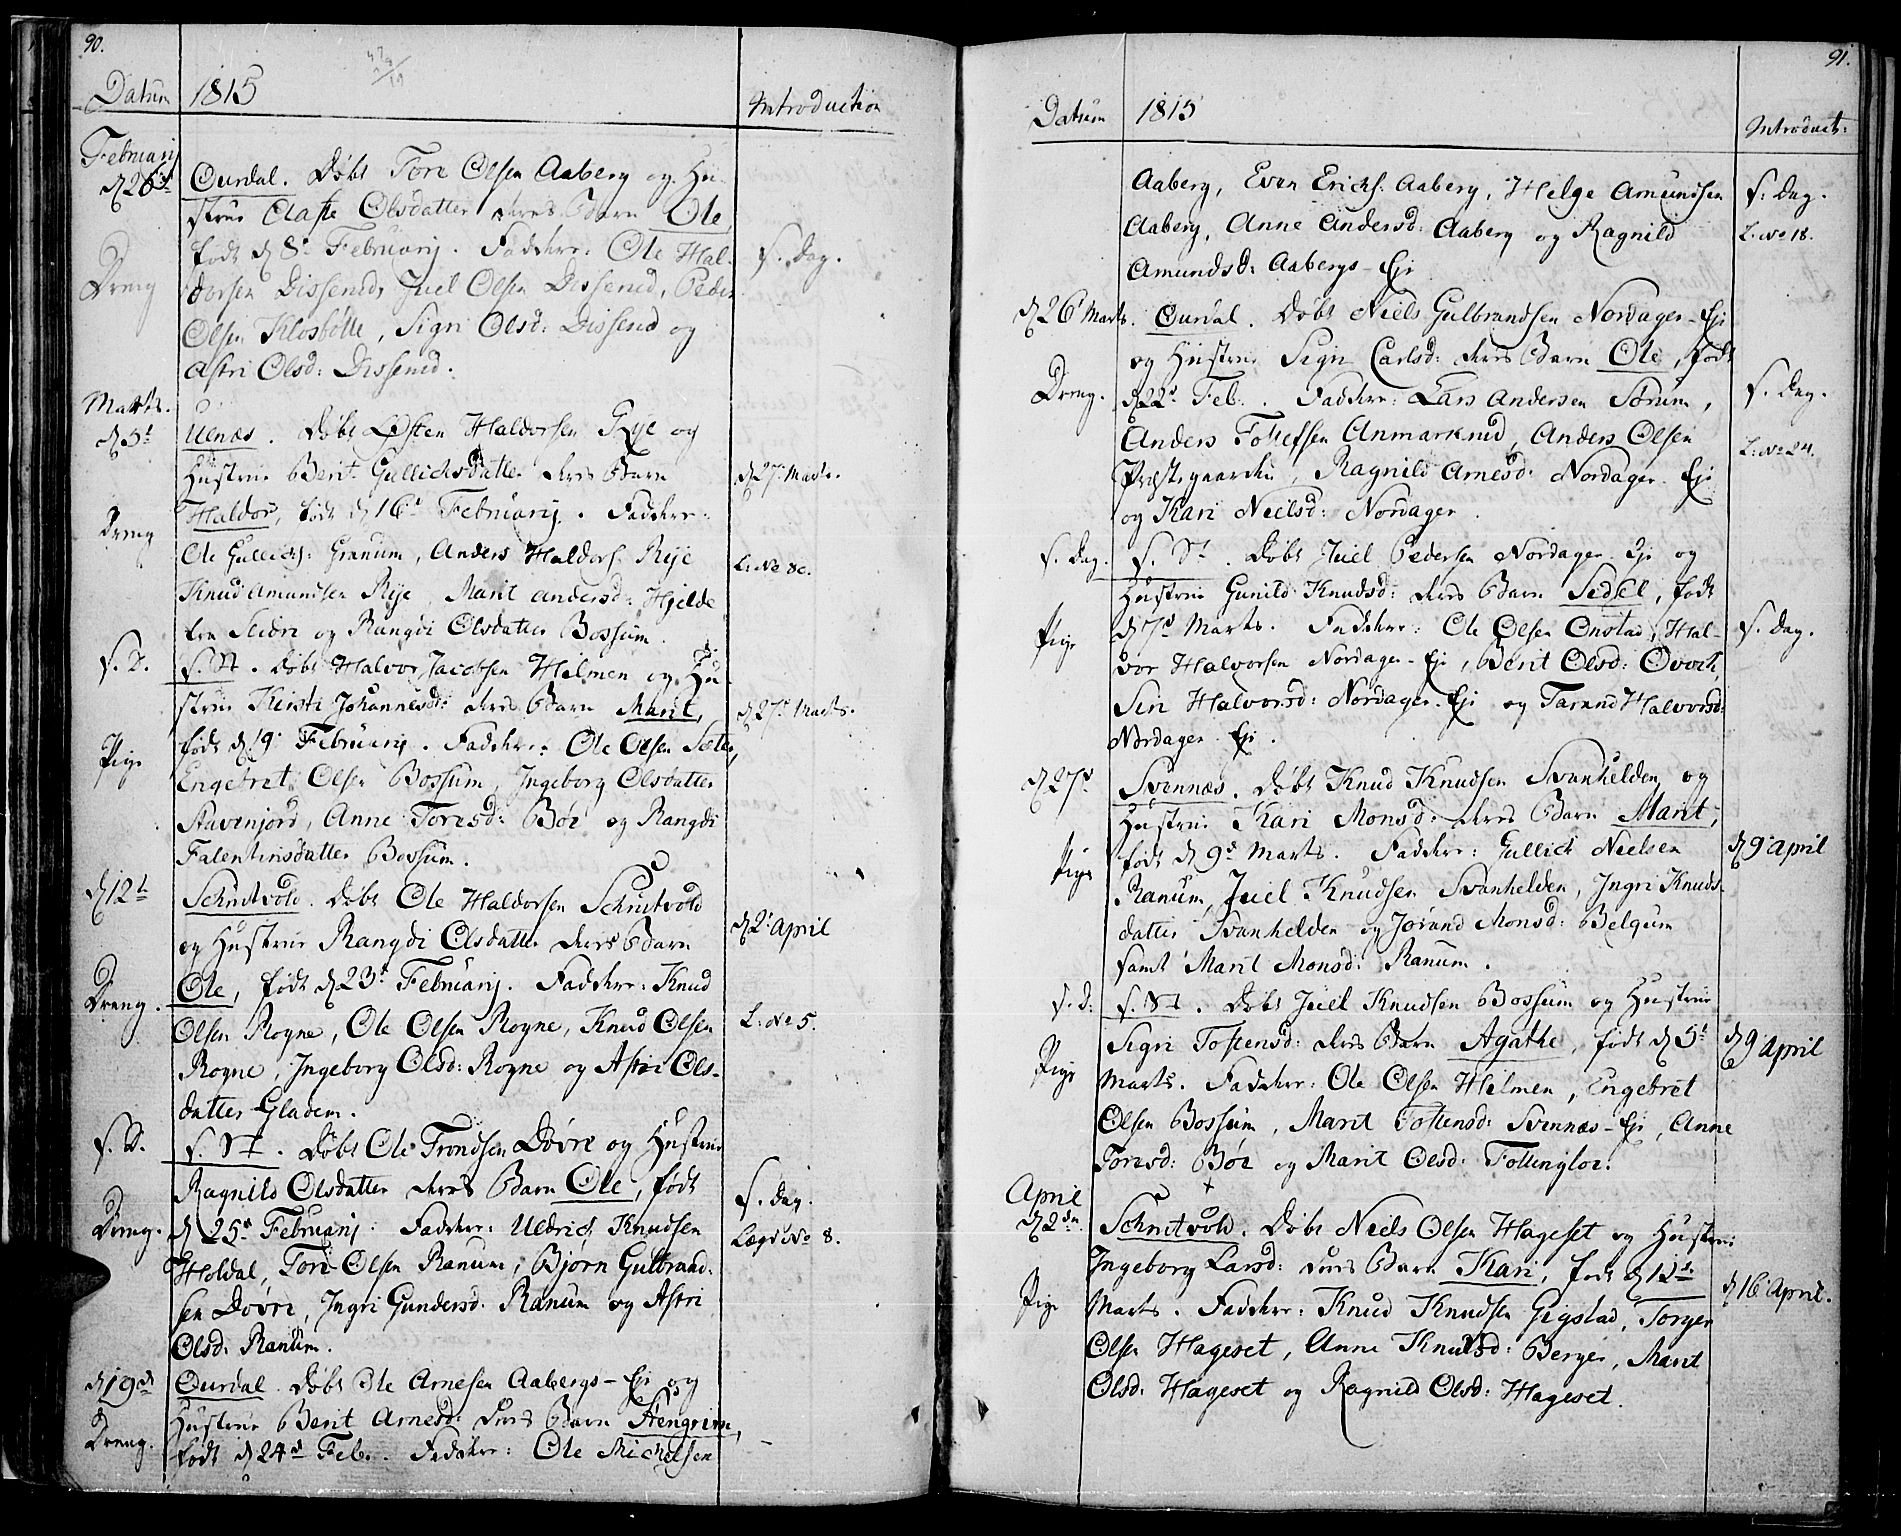 90.
Datum 1815 Introduction
Februarij
d 26d Ourdal. Døbt Tore Olsen Aaberg og Hu-
strue Claske Olsdatter deres Barn Ole,
født d 8d Februarij. Faddere: Ole Hal-
Dreng dorsen Dissenid, Juel Olsen Dissenid, Peder s. Dag.
Olsen Klosbøtte, Sigri Olsd: Dissenid og
Astri Olsd: Dissenid.
Marts.
d 5t Ulnæs. Døbt Østen Haldorsen Rye og
Hustrue Berit Gullichsdatter deres Barn d 27 Marts.
Dreng Haldor, født d 16d Februarij. Faddere:
Ole Gullichs: Granum, Anders Haldors. Rye L: No 80.
Knud Amundsen Rye, Marit Andersd: Hjelde
fra Slidre og Rangdi Olsdatter Bossum.
s. D. s. St. Døbt Halvor Jacobsen Hilmen og Hu-
strue Kersti Johannesdt: deres Barn Marit, d 27d Marts.
Pige født d 19 Februarij. Faddere: Ole Olsen Sæter,
Engebret Olsen Bossum, Ingeborg Olsdatter
Stavenjord, Anne Toresd: Bøe og Rangdi
Falentinsdatter Bossum.
d 12t Schrutvold. Døbt Ole Haldorsen Schrutvold
og Hustrue Rangdi Olsdatter deres Barn d 2 April
Dreng. Ole, født d 23d Februarij. Faddere: Knud
Olsen Rogne, Ole Olsen Rogne, Knud Olsen L: No 5.
Rogne, Ingeborg Olsd: Rogne og Astri Ols-
datter Gladem.
s. D. s. St. Døbt Ole Trondsen Døvre og Hustrue
Ragnild Olsdatter deres Barn Ole, født s. dag.
Dreng. d 25d Februarij. Faddere: Uldrich Knudsen Lægd No 8.
Holdal, Tore Olsen Ranum, Bjørn Gulbrand-
sen Døvre, Ingri Gundersd: Ranum og Astri
Olsd: Ranum.
d 19de Ourdal. Døbt Ole Arnesen Aabergs-Eje og
Hustrue Berit Arnesd: deres Barn Stengrim,
Dreng. født d 24d Feb. Faddere: Ole Michelsen
91.
Datum 1815 Introduct:
Aaberg, Even Erichs: Aaberg, Helge Amundsen s. Dag.
Aaberg, Anne Andersd: Aaberg og Ragnild L: No 18.
Amundsd: Aabergs-Eje
d 26 Marts. Ourdal. Døbt Niels Gulbrandsen Nordager-Eje
og Hustrue Sigri Carlsd: deres Barn Ole, født
Dreng. d 22d Feb. Faddere: Lars Andersen Sørum, s. Dag.
Anders Tollefsen Anmarkrud, Anders Olsen L: No 24.
Præstegaarden, Ragnild Arnesd: Nordager-Eje
og Kari Nielsd: Nordager.
s. Dag. s. St. Døbt Juel Pedersen Nordager-Eje og
Hustrue Gunild Knudsd: deres Barn Sedsel, født
Pige d 7d Marts. Faddere: Ole Olsen Onstad, Hal- s. Dag.
vor Halvorsen Nordager-Eje, Berit Olsd: Qvock,
Siri Halvorsd: Nordager-Eje og Tarand Halvorsd:
Nordager-Eje.
d 27d Svennæs. Døbt Knud Knudsen Svanhelden og
Hustrue Kari Monsd: deres Barn Marit,
Pige født d 9d Marts. Faddere: Gullich Nielsen d 9 April
Ranum, Juel Knudsen Svanhelden, Ingri Knuds-
datter Svanhelden og Jørand Monsd: Belgum
samt Marit Monsd: Ranum.
s. D. s. St. Døbt Juel Knudsen Bossum og Hustrue
Sigri Tostensd: deres Barn Agathe, født d 5t d 9 April
Pige Marts. Faddere: Ole Olsen Hilmen, Engebret
Olsen Bossum, Marit Tostensd: Svennæs-Eje, Anne
Toresd: Bøe og Marit Olsd: Tollingloe.
April
d 2den. Schrutvold. Døbt Niels Olsen Hageset og Hustrue
Ingeborg Larsd: deres Barn Kari, født d 12t
Pige Marts. Faddere: Knud Knudsen Gigstad, Torger d 16 April.
Olsen Hageset, Anne Knudsd: Berger, Marit
Olsd: Hageset og Ragnild Olsd: Hageset.